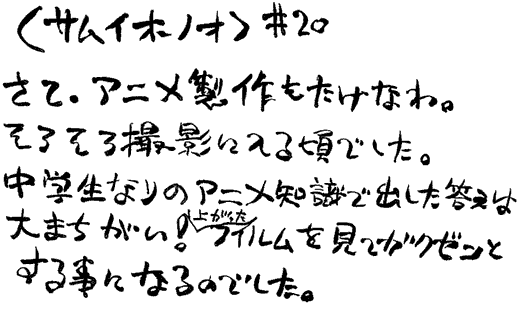 〈サムイホノオ〉#20
さて。アニメ製作もたけなわ。
そろそろ撮影に入る頃でした。
中学生なりのアニメ知識で出した答えは
大まちがい!上がったフイルムを見てガクゼンと
する事になるのでした。